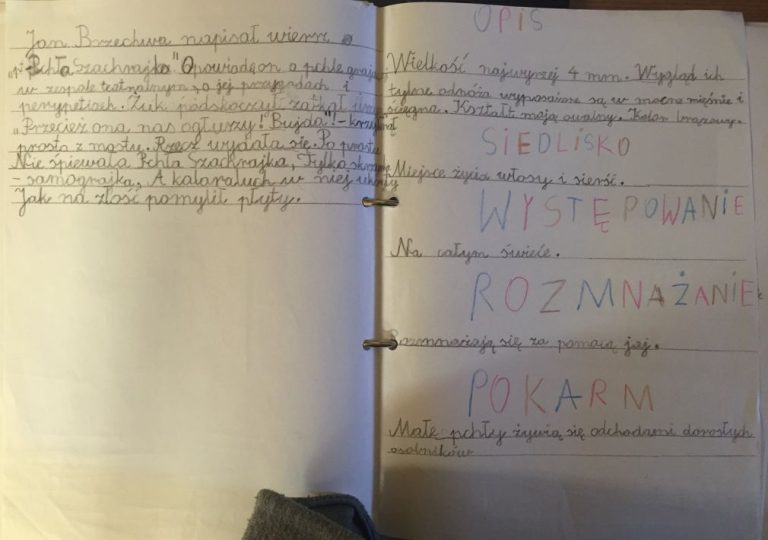 Jan Brzechwa napisał wiersz
"pt. Pchła Szachrajka" Opowiada on o pchle grającej
w zespole teatralnym, o jej przygodach i
perypetiach. Żuk podskoczył zatkał
"Przecież ona nas ogłuszy! "Bujda"! - krzyknął
prosto z mostu. Rzecz wydała się. Po prostu
Nie śpiewała Pchła Szachrajka, Tylko
- samograjka, A kataraluch w niej ukryty
Jak na złość pomylił płyty.
OPIS
Wielkość najwyrzej 4 mm. Wygląd ich
tylne odnóża wyposażone są w mocne mięśnie i
ścięgna. Kształt mają owalny. Kolor brązowy.
SIEDLISKO
Miejsce życia włosy i sierść.
WYSTĘPOWANIE
Na całym świecie.
ROZMNAŻANIE
Rozmnażają się za pomocą jaj.
POKARM
Małe pchły żywią się odchodami dorosłych
osobników